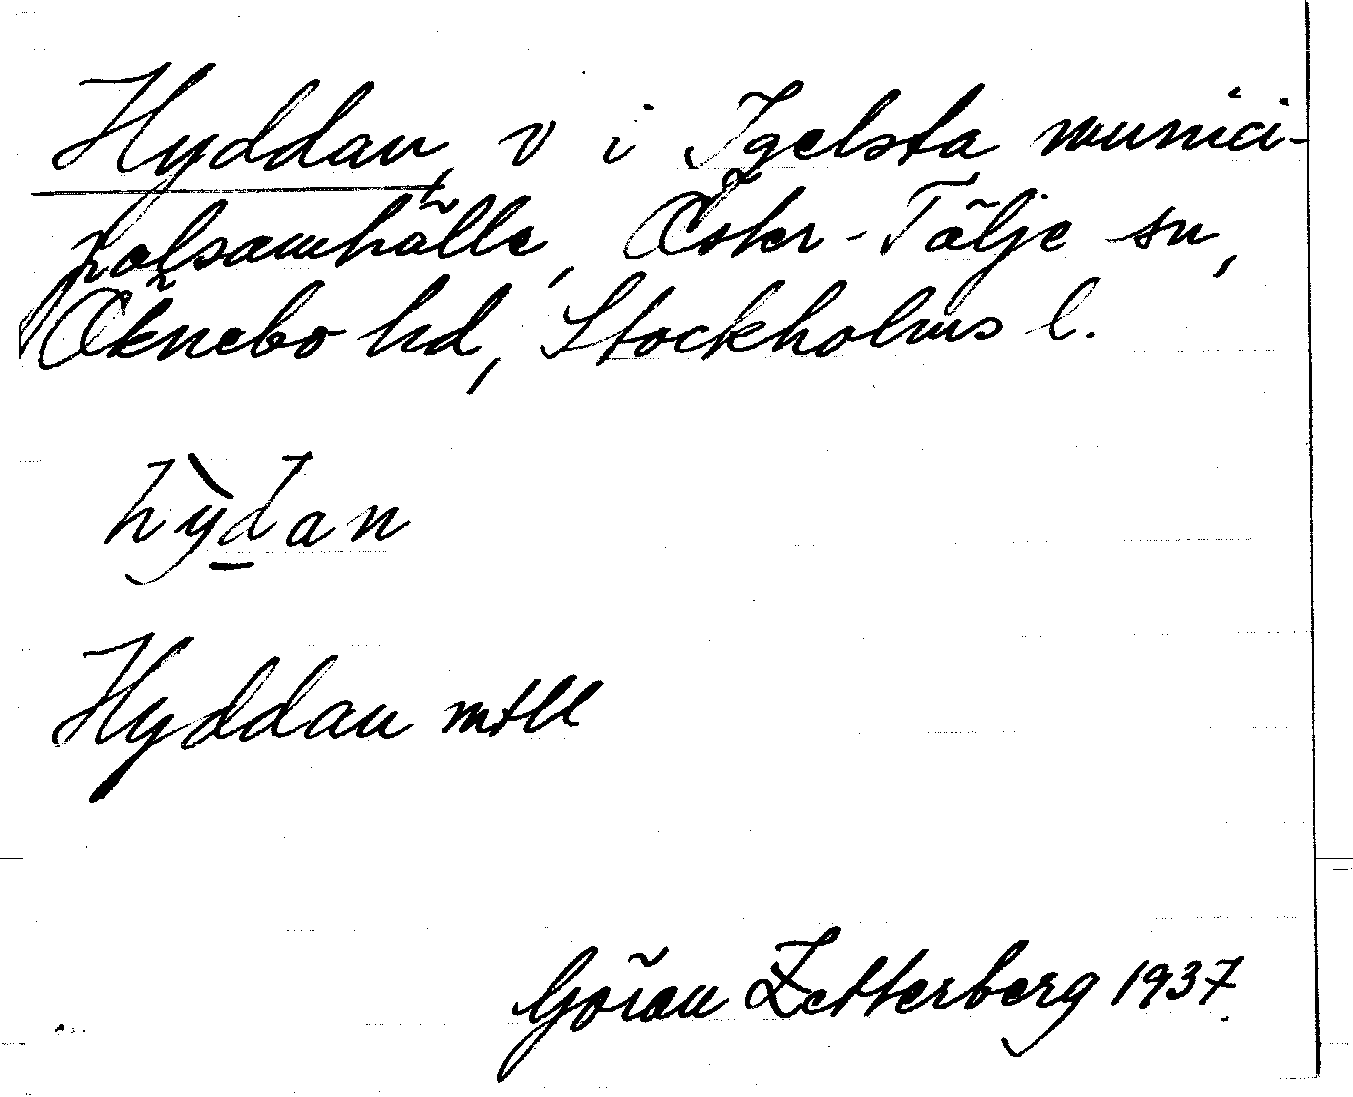 Hyddan, v i Igelsta munici-
palsamhälle, Öster-Tälje sn,
Öknebo hd, Stockholms l.
hỳdan
Hyddan mtll
Göran Zetterberg 1937.